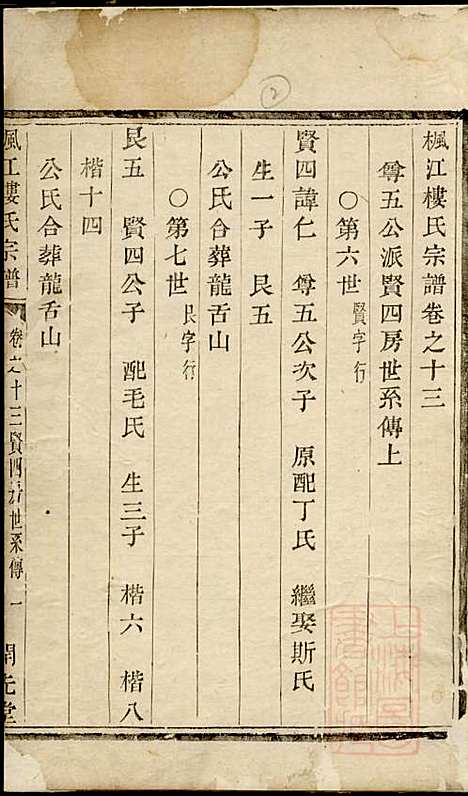 ②
楓江樓氏宗譜卷之十三
尊五公派賢四房世系傳上
○第六世 賢字行
賢四諱仁 尊五公次子 原配丁氏 繼娶斯氏
生一子 艮五
公氏合葬龍舌山
○第七世 艮字行
艮五 賢四公子 配毛氏 生三子 楷六 楷八
楷十四
公氏合葬龍舌山
楓江樓氏宗譜 卷之十三賢四房世系傳 一